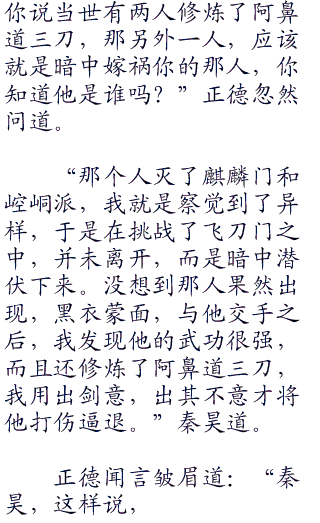 你说当世有两人修炼了阿鼻
道三刀，那另外一人，应该
就是暗中嫁祸你的那人，你
知道他是谁吗？”正德忽然
问道。
“那个人灭了麒麟门和
崆峒派，我就是察觉到了异
样，于是在挑战了飞刀门之
中，并未离开，而是暗中潜
伏下来。没想到那人果然出
现，黑衣蒙面，与他交手之
后，我发现他的武功很强，
而且还修炼了阿鼻道三刀，
我用出剑意，出其不意才将
他打伤逼退。”秦昊道。
正德闻言皱眉道：“秦
昊，这样说，